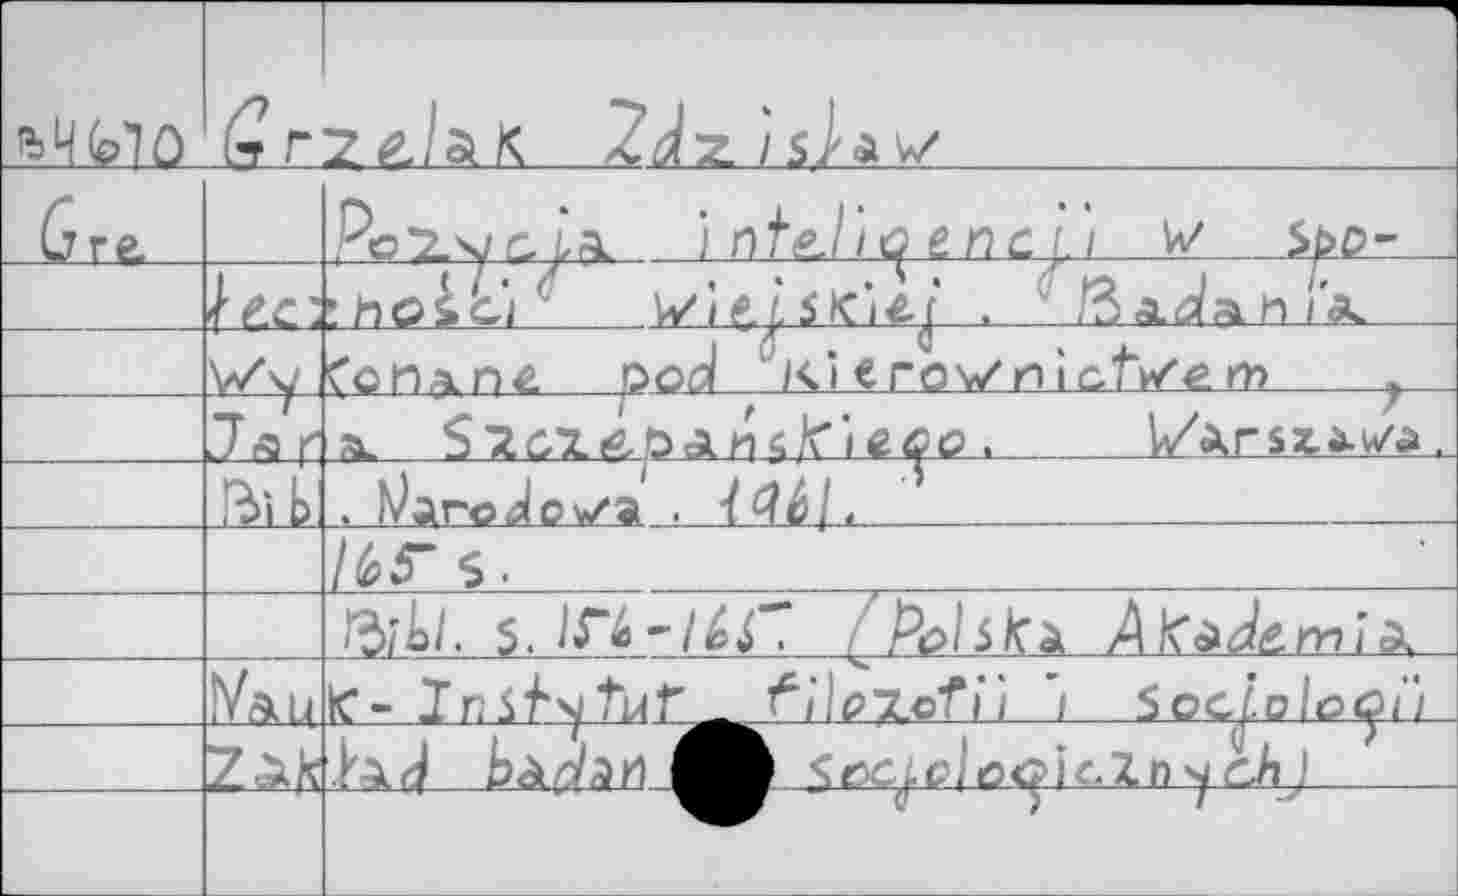 Grzelak Zdzisław
Gre Pozycja inteligencji w spo-
łeczności wiejskiej. Badania
wykonane pod kierownictwem
Jana Szczepańskiego. Warszawa.
Bib. Narodowa. 1961.
165 s.
Bibl. s. 156-165. (Polska Akademia
Nauk- Instytut filozofii i Socjologii
Zakład badań Socjologicznych)